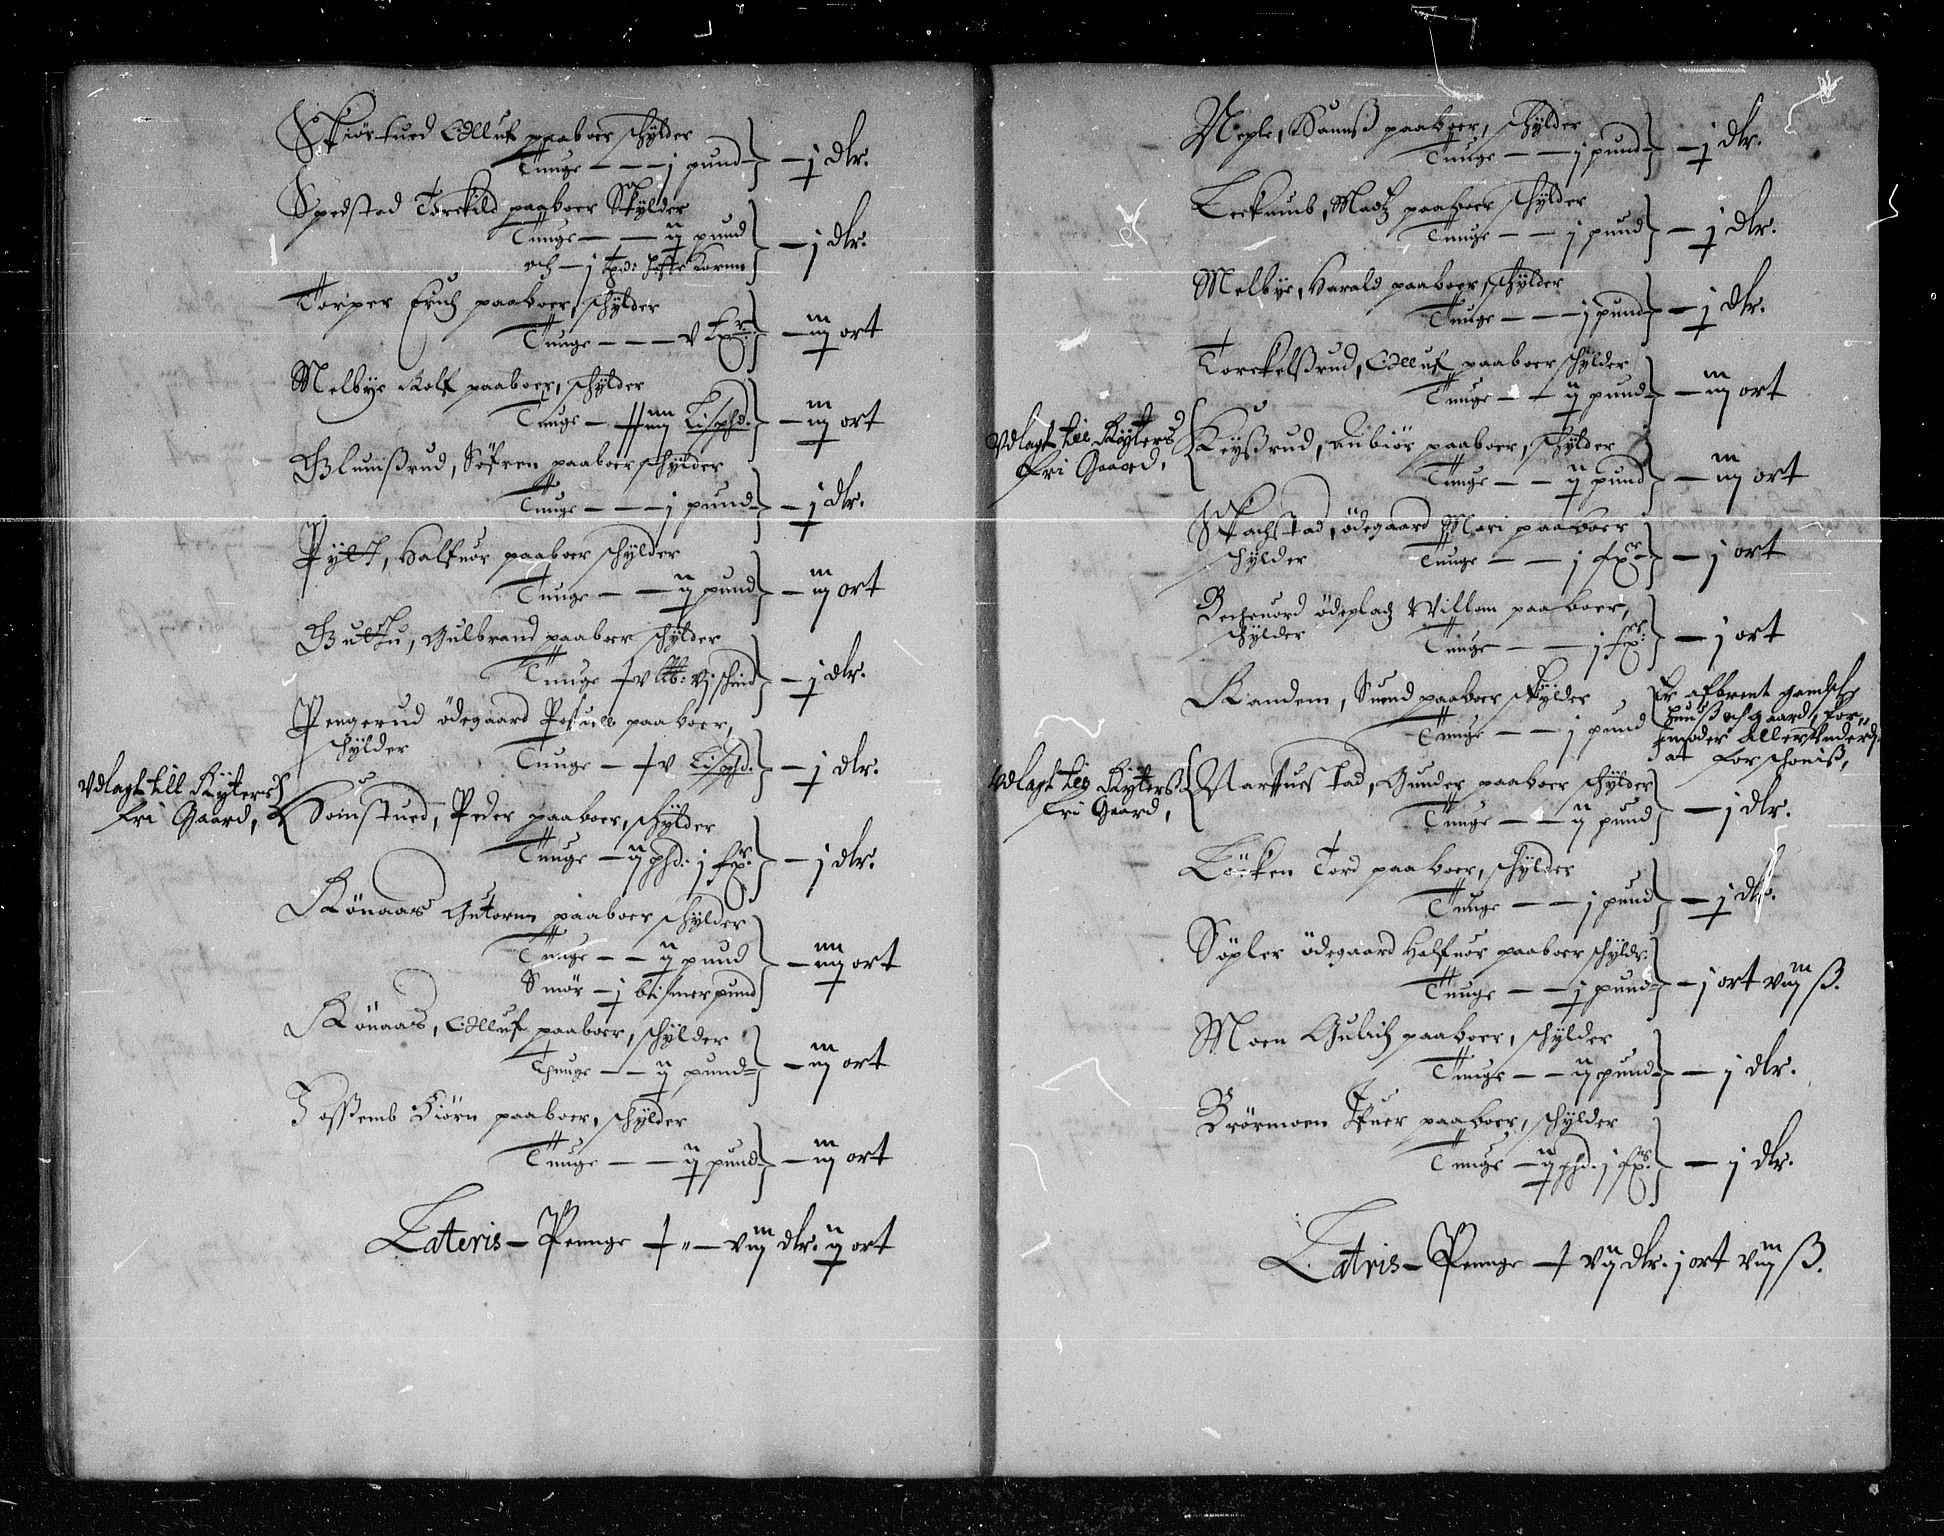 Skiørtued Olluf paaboer schÿlder
Tunge — — — j pund — j dlr.
Spedstad Torkild paaboer Skÿlder
Tunge — — ij pund
och — j fpd: Kornn — j dlr.
Torper Erich paaboer, schÿlder
Tunge — — — v fxr: — iij ort
Melbye Rolf paaboer, schÿlder
Tunge — iiij Lisphd: — iij ort
Glumißrud, Søfren paaboer schÿlder
Tunge — — — j pund — j dlr.
Pÿlt, Halfuor paaboer schÿlder
Tunge — — ij pund — iij ort
Guttu, Gulbrand paaboer schÿlder
Tunge — v lb: vj schind — j dlr.
Pengerud ödegaard Pofuell paaboer,
schÿlder Tunge — v Lisphd: — j dlr.
Vdlagt till Rÿters
fri Gaard,
Soinstued, Peder paaboer, schÿlder
Tunge — ij phd: j fxr: — j dlr.
Rönaas Gutorm paaboer schÿlder
Tunge — — ij pund
Smör — j bismerpund — iiij ort
Rönaas, Olluf paaboer, schÿlder
Thunge — — ij pund — iij ort
Joßemb Biörn paaboer, schÿlder
Tunge — — ij pund — iij ort
Lateris — Pennge — viij dlr. ij ort
Neple, Hanns paaboer, schÿlder
Tunge — — j pund — j dlr.
Leekumb, Madtz paaboer schÿlder
Tunge — — j pund — j dlr.
Melbye, Harald paaboer schÿlder
Tunge — — — j pund — j dlr.
Torckelßrud, Olluf paaboer schÿlder
Tunge — — ij pund — iij ort
Vdlagt till Rÿters
fri Gaard,
Keÿßrud, Anbiör paaboer, schÿlder
Tunge — — ij pund — iij ort
Skachstad, ödegaard Mari paaboer
schÿlder Tunge — — j fxr: — j ort
Bechenord ödeplads Willom paaboer,
schÿlder Tunge — — j fxr: — j ort
Randem, Suend paaboer skÿlder
Tunge — — j pund
Er afbrent gandsche
huuß och gaard, for
at forschoniß,
Vdlagt till Rÿters
fri Gaard,
Wartuestad, Gunder paaboer schÿlder
Tunge — — ij pund — j dlr.
Löcken Tord paaboer, schÿlder
Tunge — — j pund — j dlr.
Söpler ödegaard Halfuor paaboer schÿldr.
Tunge — — j pund — j ort viij ß.
Moen Gulich paaboer, schÿlder
Tunge — — ij pund — j dlr.
Brörmoen Juer paaboer, schÿlder
Tunge — ij phd. j fxr: — j dlr.
Latris — Pennge — vij dlr. j ort viij ß.